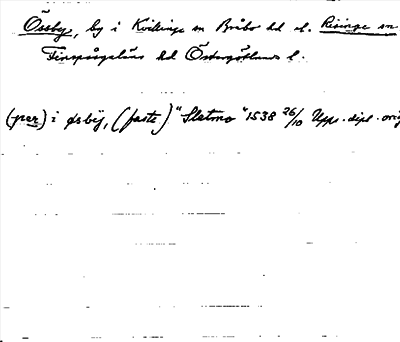 Össby, by i Kvillinge sn Bråbo hd el. Risinge sn
Finspångaläns hd Östergötlands l.
(per) i øsbÿ, (faste) "Sletmo" 1538 26/10 Upps. dipl. orig